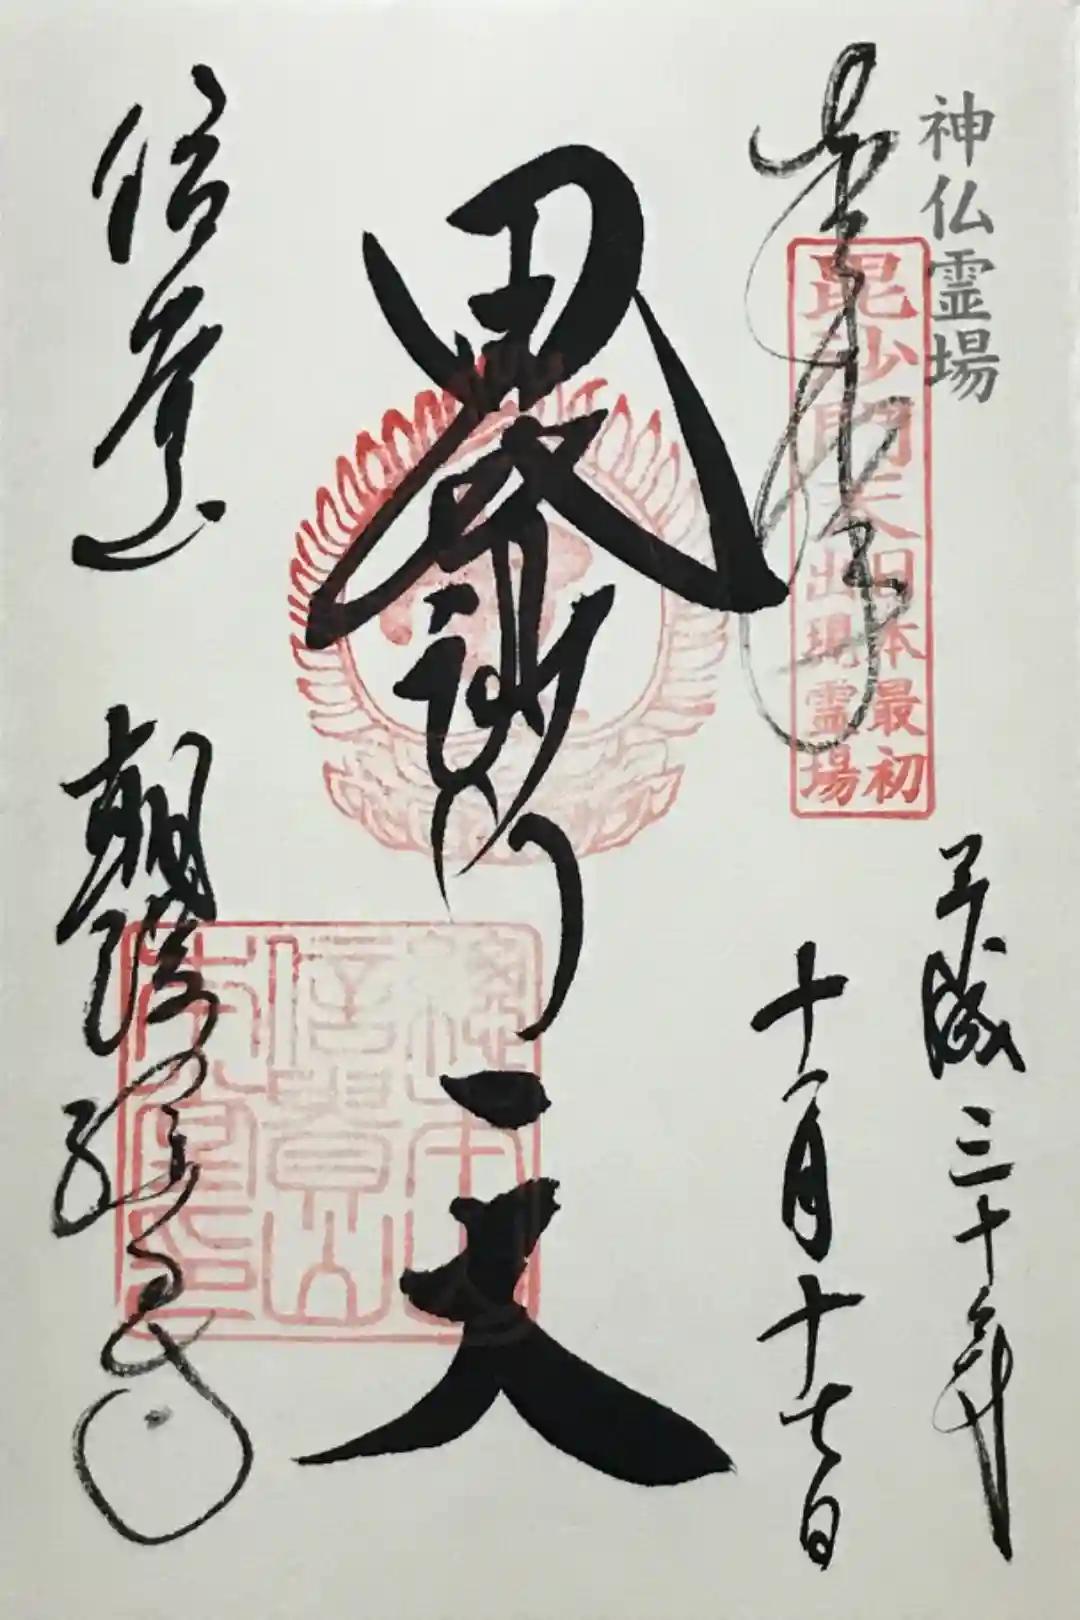 神仏霊場
奉拝
毘沙門天
日本最初
出現霊場
平成三十年
十一月十七日
毘沙門天
信貴山
信貴山
朝護孫子寺